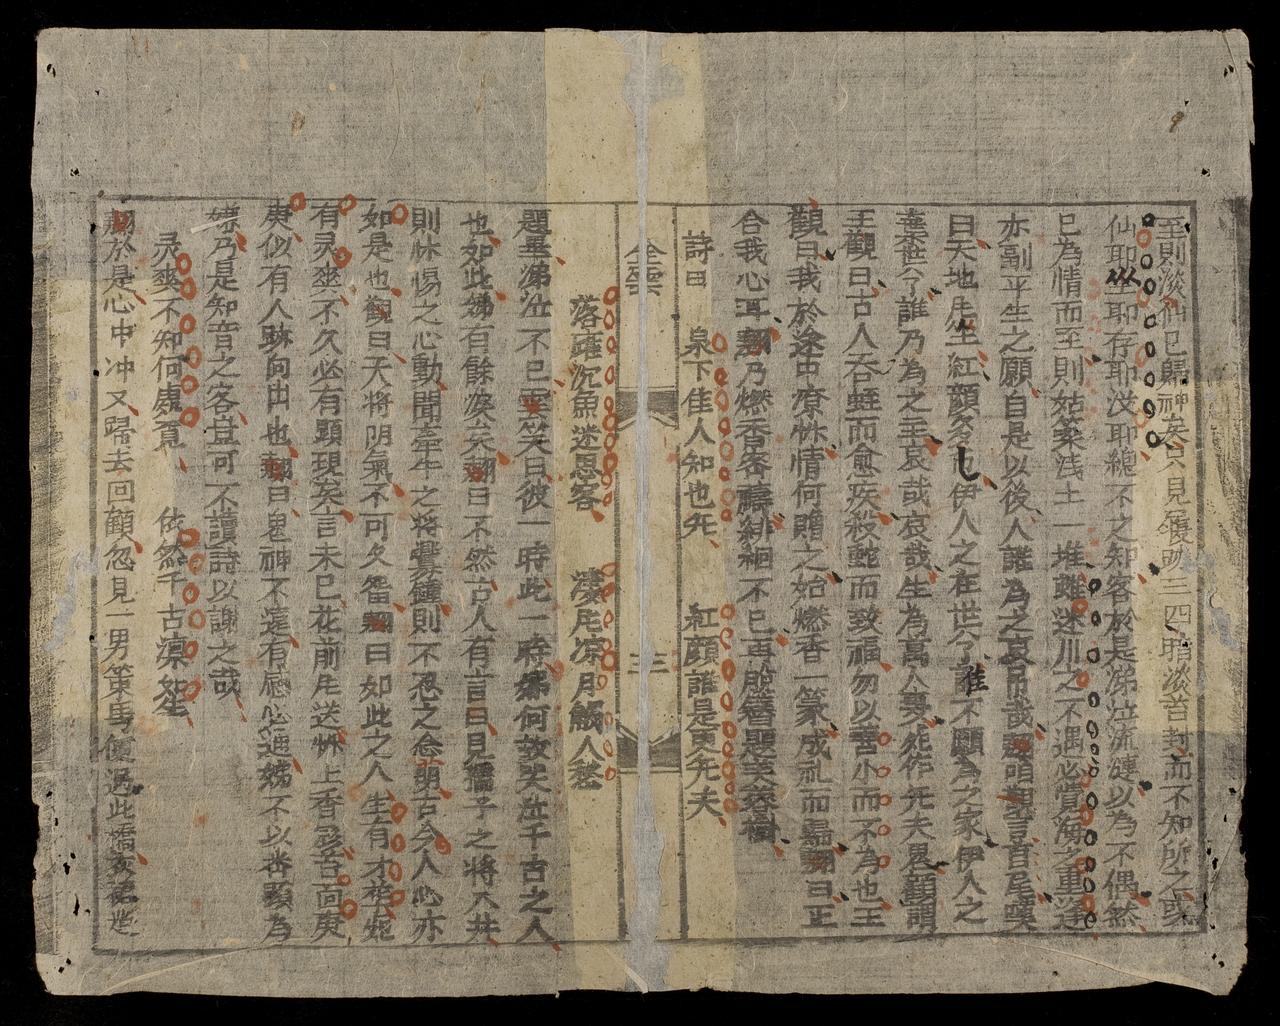 至則淡仙已歸神矣只見履跡三四暗淡苔封而不知所之或
仙耶 耶存耶沒耶總不之知客於是涕泣流漣以為不偶然
已為情而至則姑築浅土一堆雖迷川之不遇必覺海之重逢
亦副平生之願自是以後人誰為之哀吊哉翹咱觀言首尾嘆
曰天地生生紅顏多 伊人之在世兮誰不願為之家伊人之
棄世兮誰乃為之主哀哉哀哉生為萬人妻死作無夫鬼顧謂
王觀曰古人吞蛭而愈疾殺蛇而致福勿以善小而不為也王
觀曰我於途中 情何贈之始燃香一篆成礼而歸翹曰正
合我心耳翹乃燃香密禱緋徊不已再脫簪題芙蓉樹
詩曰 泉下佳人知也无 紅顔誰是更无夫
金雲 三
落雁沉魚迷恩客 淒尾凉月觸人愁
題畢涕泣不已雲笑曰彼一時此一時娣何故哭泣千古之人
也如此娣有餘淚矣翹曰不然古人有言曰見孺子之將入井
則怵惕之心動聞牽牛之將釁鍾則不忍之念萌古今人心亦
如是也觀曰天將阴氣不可久留翹曰如此之人生有才祖死
有灵爽不久必有顕現矣言未已花前 送 上香 苔面庚
庚似有人跡向出也翹曰鬼神不遠有感必通娣不以番顕為
嫌乃是知音之客豈可不讀詩以謝之哉
灵爽不知何處覔 依然千古凛如生
翹於是心中冲又歸去回顧忽見一男策馬 過此橋